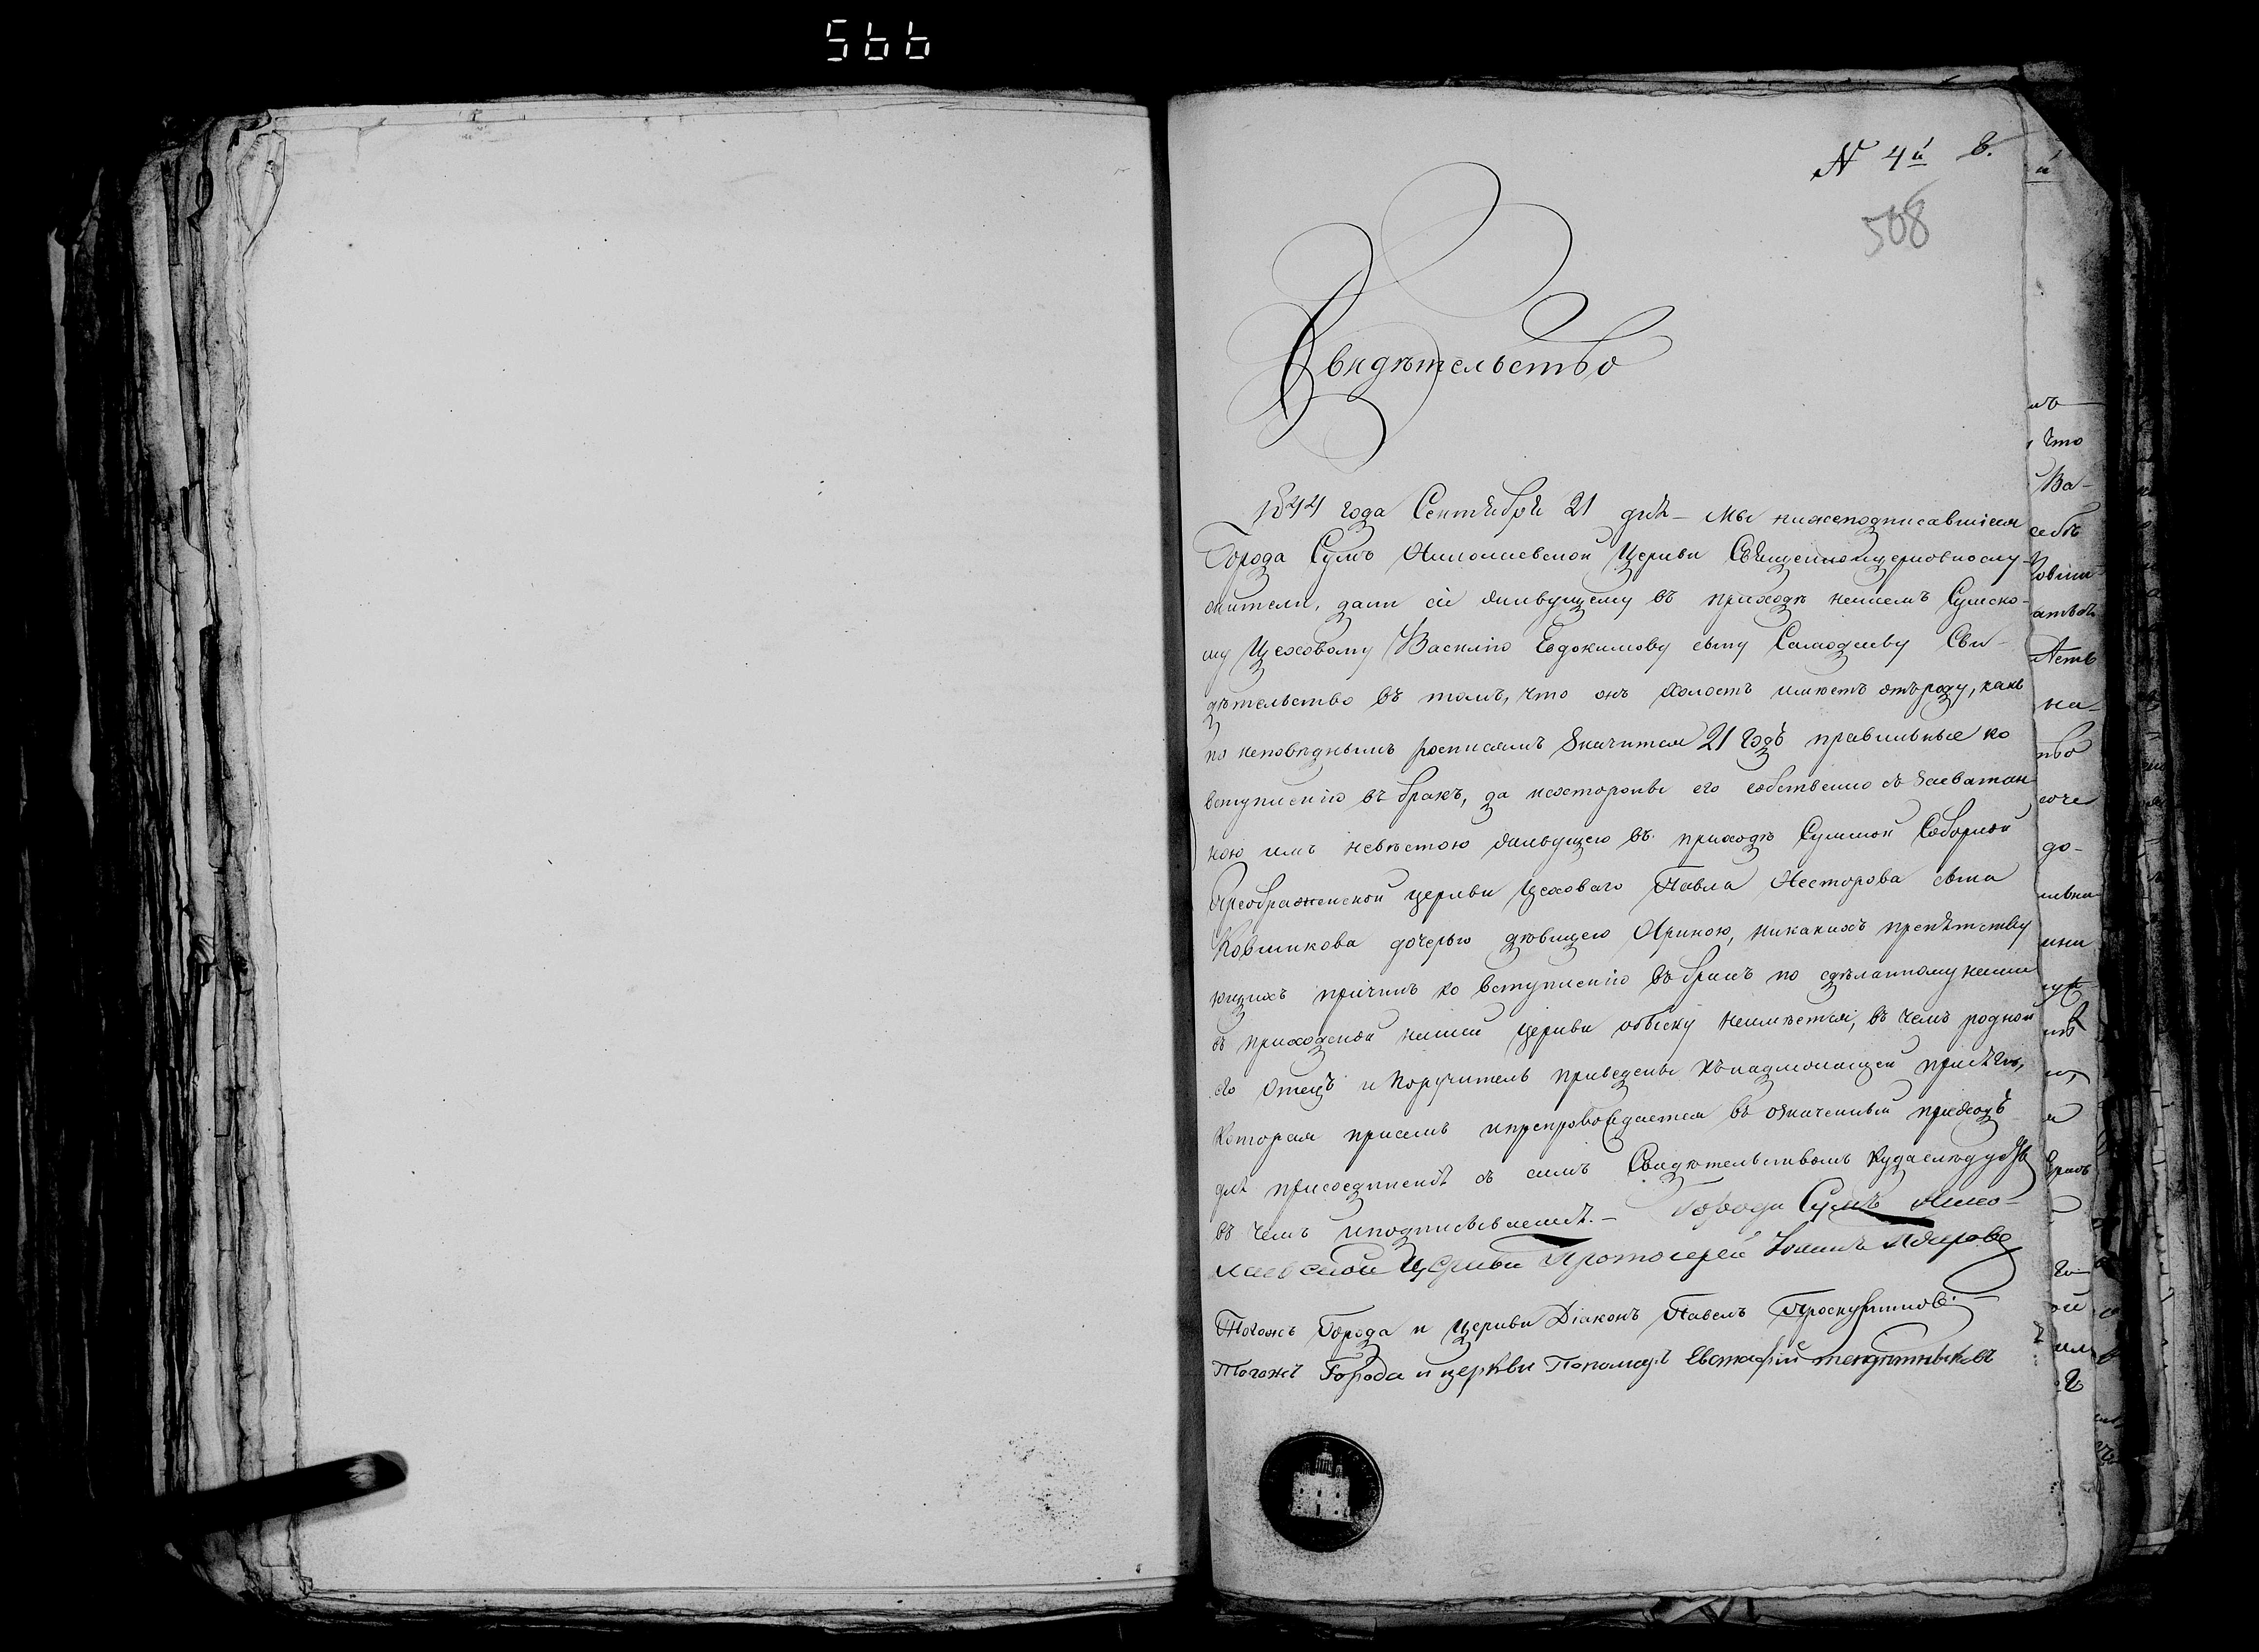 566
N 4й 8.
508
Свидѣтельство
1844 года Сентября 21 дня – Мы нижеподписавшіеся
Города Сумъ Николаевской Церкви Священноцерковнослу-
жители, дали сіе живущему въ приходѣ нашемъ Сумско-
му Цеховому Василію Евдокимову сыну Свы-
дѣтельство въ томъ, что онъ холостъ имѣетъ отъ роду, какъ
по исповѣднымъ росписямъ значится 21 годъ правильные ко
вступленію въ бракъ, да исстороны его собственно съ засватан
ною имъ невѣстою живущею въ приходѣ Сумской Соборной
Преображенской церкви Цеховаго Павла Несторова сына
Ковшикова дочерью дѣвицею Ириною, никакихъ препятству
ющихъ причинъ ко вступленію въ бракъ по сдѣланному нами
въ приходской нашей церкви обыску неимѣется, въ чемъ родной
его Отецъ и Поручитель приведены къ надлежащей присягѣ,
которая присемъ ипрепровождается въ означенный приходъ
для присоединенія съ симъ Свидѣтельствомъ куда слѣдуетъ
въ чемъ иподписываемся. – Города Сумъ Нико-
лаевской Церкви Протоіерей Іоаннъ
Тогожъ Города и Церкви Діаконъ Павелъ
Тогожъ Города и церкви Пономарь Евстафій